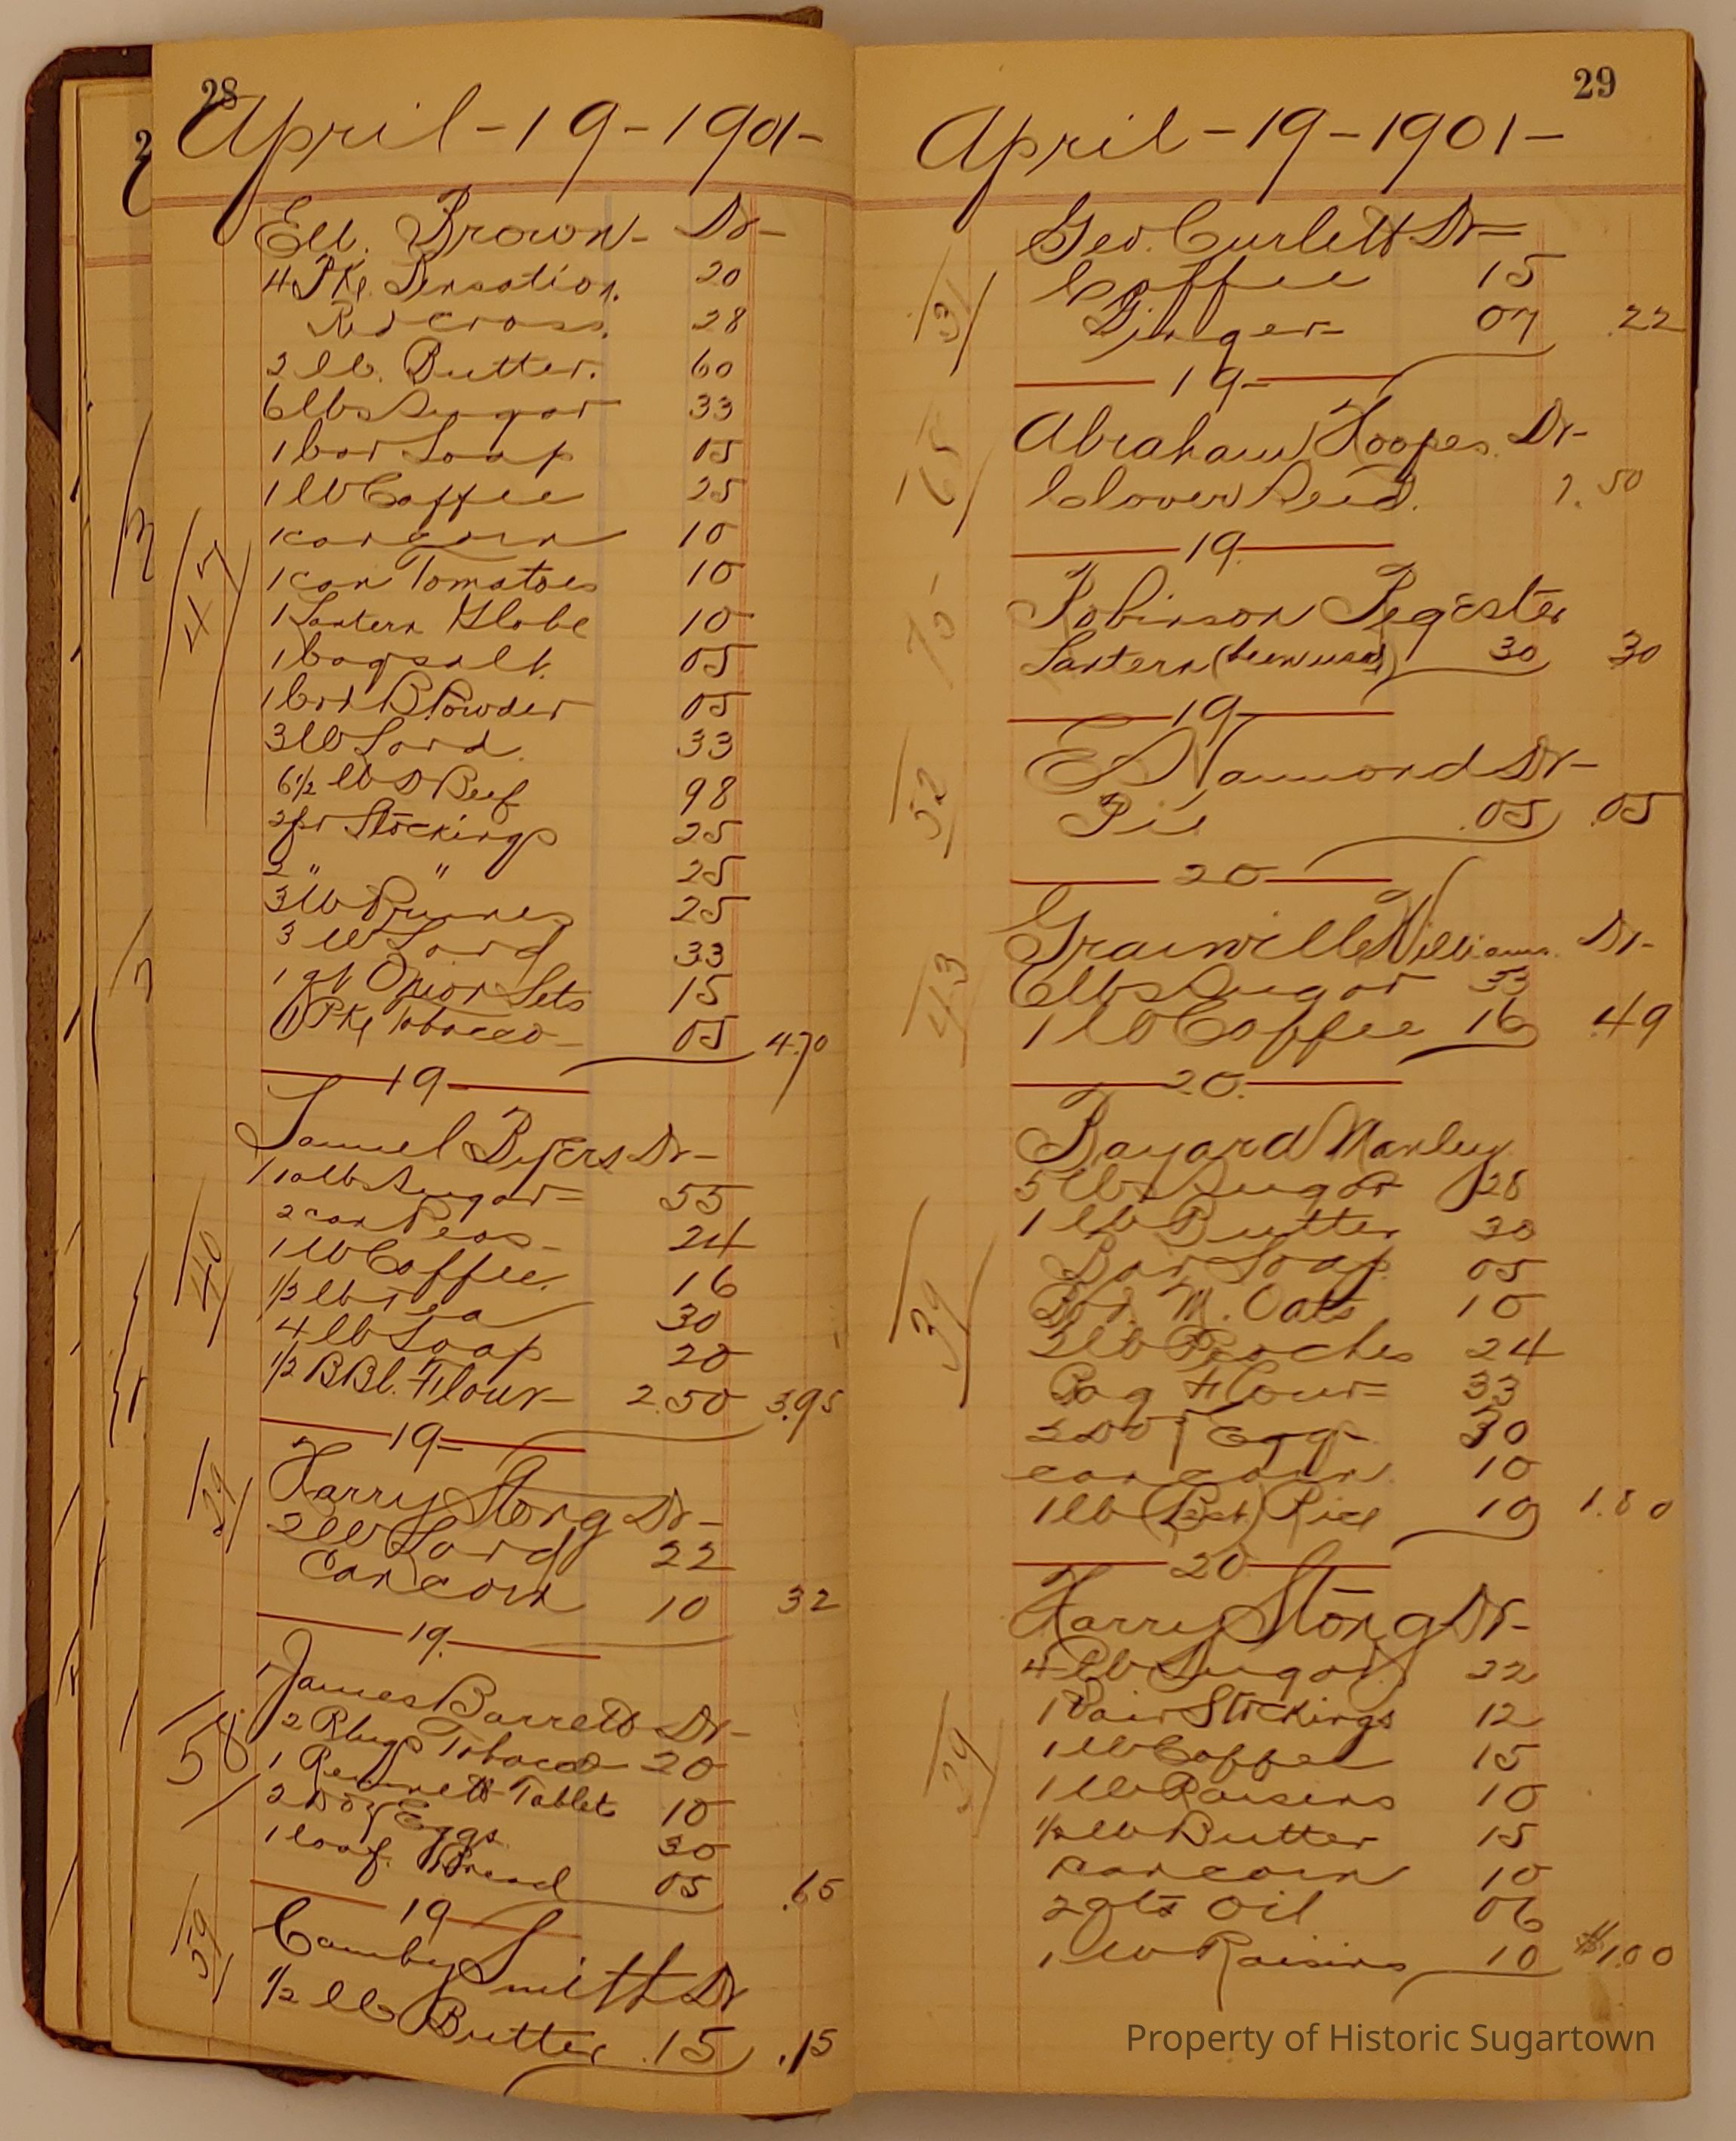 28
April-19-1901-
Ell. Brown- Dr-
4 Pkg Sensation. 20
Red cross. 28
2 lb. Butter. 60
6 lbs Sugar 33
1 bar Soap 05
1 lb Coffee 25
1 can corn 10
1 can Tomatoes 10
1 Lantern Globe 10
1 bag salt. 05
1 box B. Powder 05
3 lb Lard. 33
6½ lb D Beef 98
2 pr Stockings 25
2 " " 25
3 lb Prunes 25
3 lb Lard 33
1 qt Onion Sets 15
1 Pkg Tobacco- 05 4.70
45
19-
Samuel Byers Dr-
10 lbs Sugar 55
2 can Peas- 24
1 lb Coffee. 16
½ lb Tea 30
4 lb Soap 20
½ BBl. Flour- 2.50 3.95
40
19-
Harry Stong Dr-
2 lb Lard 22
Can corn 10 32
29
19.
James Barrett Dr-
2 Plugs Tobacco- 20
1 Rennett Tablets 10
2 Doz Eggs 30
1 loaf. Bread 05 .65
58
19
Camby Smith Dr
½ lb Butter .15 .15
59
29
April-19-1901-
Geo. Curlett Dr-
Coffee 15
Ginger- 07 .22
31
19-
Abraham Hoopes. Dr-
Clover Seed. 7.50
65
19.
Robinson Pegester
Lantern (been used) 30 30
70
19
E Namond Dr-
Pie .05 .05
52
20
Grainville Williams. Dr-
6 lbs Sugar 33
1 lb Coffee 16 .49
43
20.
Bayard Manley
5 lbs Sugar 28
1 lb Butter 30
Bar Soap. 05
Box. M. Oats 10
3 lb Peaches 24
Bag Flour- 33
2 Doz Egg- 30
can corn 10
1 lb Rice 10 1.80
39
20
Harry Stong Dr-
4 lb Sugar 22
1 Pair Stockings 12
1 lb Coffee 15
1 lb Raisins 10
½ lb Butter 15
can corn 10
2 qts Oil 06
1 lb Raisins 10 $1.00
29
Property of Historic Sugartown